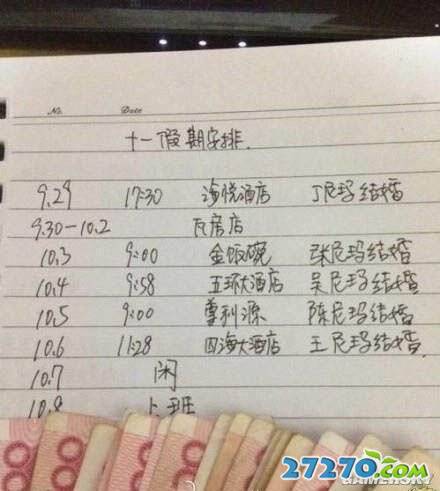 No. Date
十一假期安排.
9.29 17:30 海悦酒店 丁尼玛结婚
9.30-10.2 瓦房店
10.3 9:00 金饭碗 张尼玛结婚
10.4 9:58 五环大酒店 吴尼玛结婚
10.5 9:00 尊利源 陈尼玛结婚
10.6 11:28 四海大酒店 王尼玛结婚.
10.7 闲
10.8 上班
27270.com